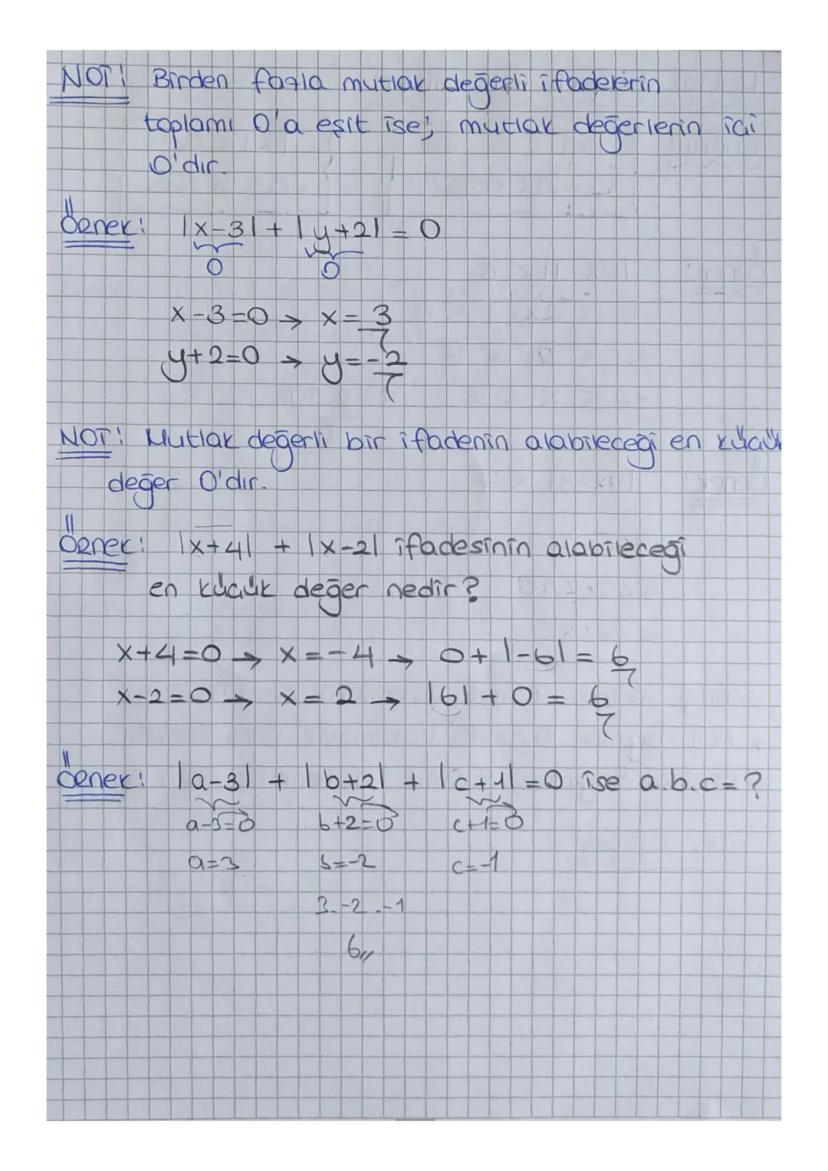 NOT! Birden fazla mutlak değerli ifadelerin
toplamı 0'a eşit ise; mutlak değerlerin içi
0'dır.
Örnek: |x-3| + |y+2| = 0
0 0
x-3=0 → x=3
y+2=0 → y=-2
NOT: Mutlak değerli bir ifadenin alabileceği en küçük
değer 0'dır.
Örnek: |x+4| + |x-2| ifadesinin alabileceği
en küçük değer nedir?
x+4=0 → x=-4 → 0+|-6|=6
x-2=0 → x=2 → |6|+0=6
Örnek: |a-3| + |b+2| + |c+1|=0 ise a.b.c=?
a-3=0 b+2=0 c+1=0
a=3 b=-2 c=-1
3.-2.-1
6//